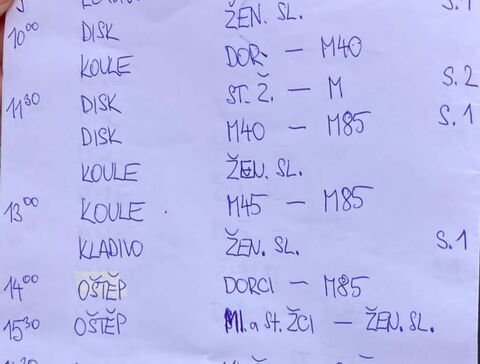 ŽEN. SL. S.1
10⁰⁰ DISK
KOULE DOR. — M40
DISK ST. Ž. — M S.2
11³⁰ DISK M40 — M85 S.1
KOULE ŽEN. SL.
13⁰⁰ KOULE M45 — M85
KLADIVO ŽEN. SL. S.1
14⁰⁰ OŠTĚP DORCI — M85
15³⁰ OŠTĚP Ml. a St. ŽCI — ŽEN. SL.